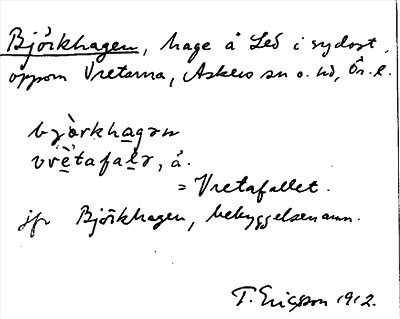 Björkhagen, hage å Led i sydost,
öppom Vretarna, Askers sn o. hd, Ör. l.
bjòrkhagən
vrètafalə, å.
= Vretafallet.
jfr Björkhagen, bebyggelsenamn.
T. Ericsson 1912.